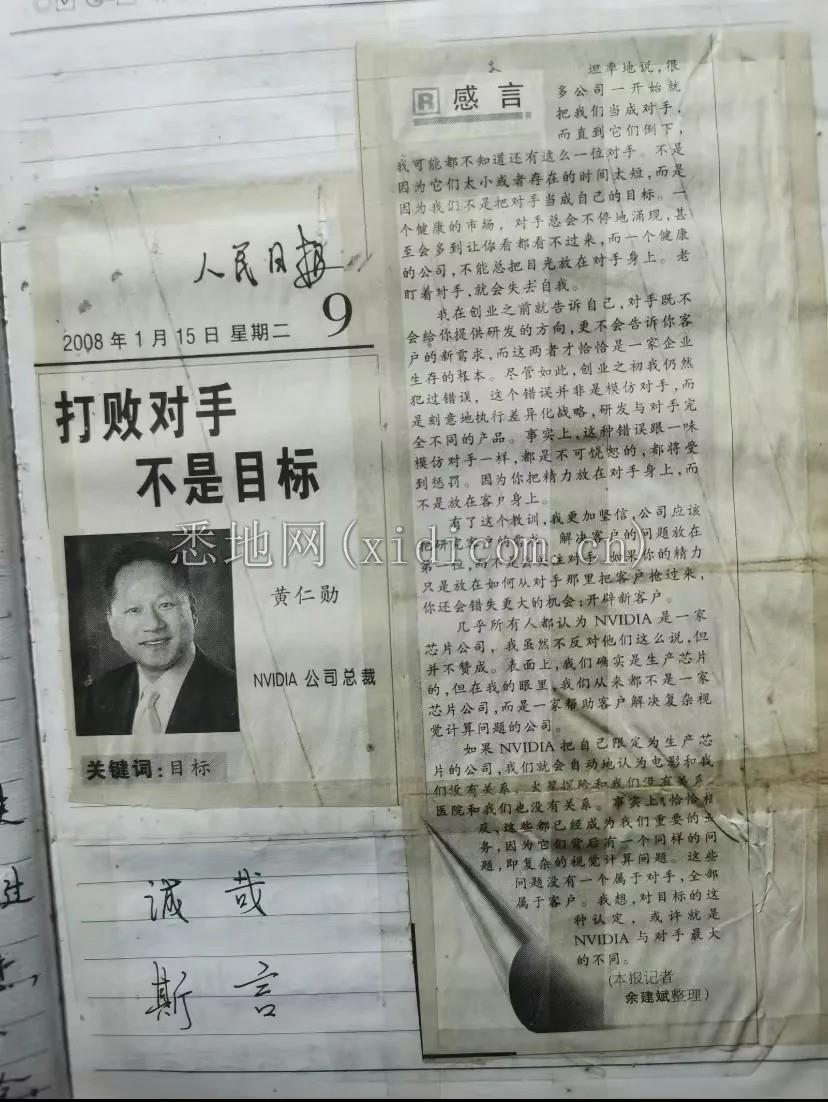 人民日报
9
2008年1月15日 星期二
打败对手
不是目标
黄仁勋
NVIDIA 公司总裁
关键词:目标
诚哉
斯言
R 感言
坦率地说,很
多公司一开始就
把我们当成对手,
而直到它们倒下,
我可能都不知道还有这么一位对手。不是
因为它们太小或者存在的时间太短,而是
因为我们不是把对手当成自己的目标。一
个健康的市场,对手总会不停地涌现,甚
至会多到让你看都看不过来,而一个健康
的公司,不能总把目光放在对手身上。老
盯着对手,就会失去自我。
我在创业之前就告诉自己,对手既不
会给你提供研发的方向,更不会告诉你客
户的新需求,而这两者才恰恰是一家企业
生存的根本。尽管如此,创业之初我仍然
犯过错误,这个错误并非是模仿对手,而
是刻意地执行差异化战略,研发与对手完
全不同的产品。事实上,这种错误跟一味
模仿对手一样,都是不可饶恕的,都将受
到惩罚。因为你把精力放在对手身上,而
不是放在客户身上。
有了这个教训,我更加坚信,公司应该
把研究客户的需求、解决客户的问题放在
第一位,而不是去关注对手。如果你的精力
只是放在如何从对手那里把客户抢过来,
你还会错失更大的机会:开辟新客户。
几乎所有人都认为 NVIDIA 是一家
芯片公司,我虽然不反对他们这么说,但
并不赞成。表面上,我们确实是生产芯片
的,但在我的眼里,我们从来都不是一家
芯片公司,而是一家帮助客户解决复杂视
觉计算问题的公司。
如果 NVIDIA 把自己限定为生产芯
片的公司,我们就会自动地认为电影和我
们没有关系,火星探险和我们没有关系,
医院和我们也没有关系。事实上,恰恰相
反,这些都已经成为我们重要的业
务,因为它们背后有一个同样的问
题,即复杂的视觉计算问题。这些
问题没有一个属于对手,全部
属于客户。我想,对目标的这
种认定,或许就是
NVIDIA 与对手最大
的不同。
(本报记者
余建斌整理)
悉地网(xidicom.cn)